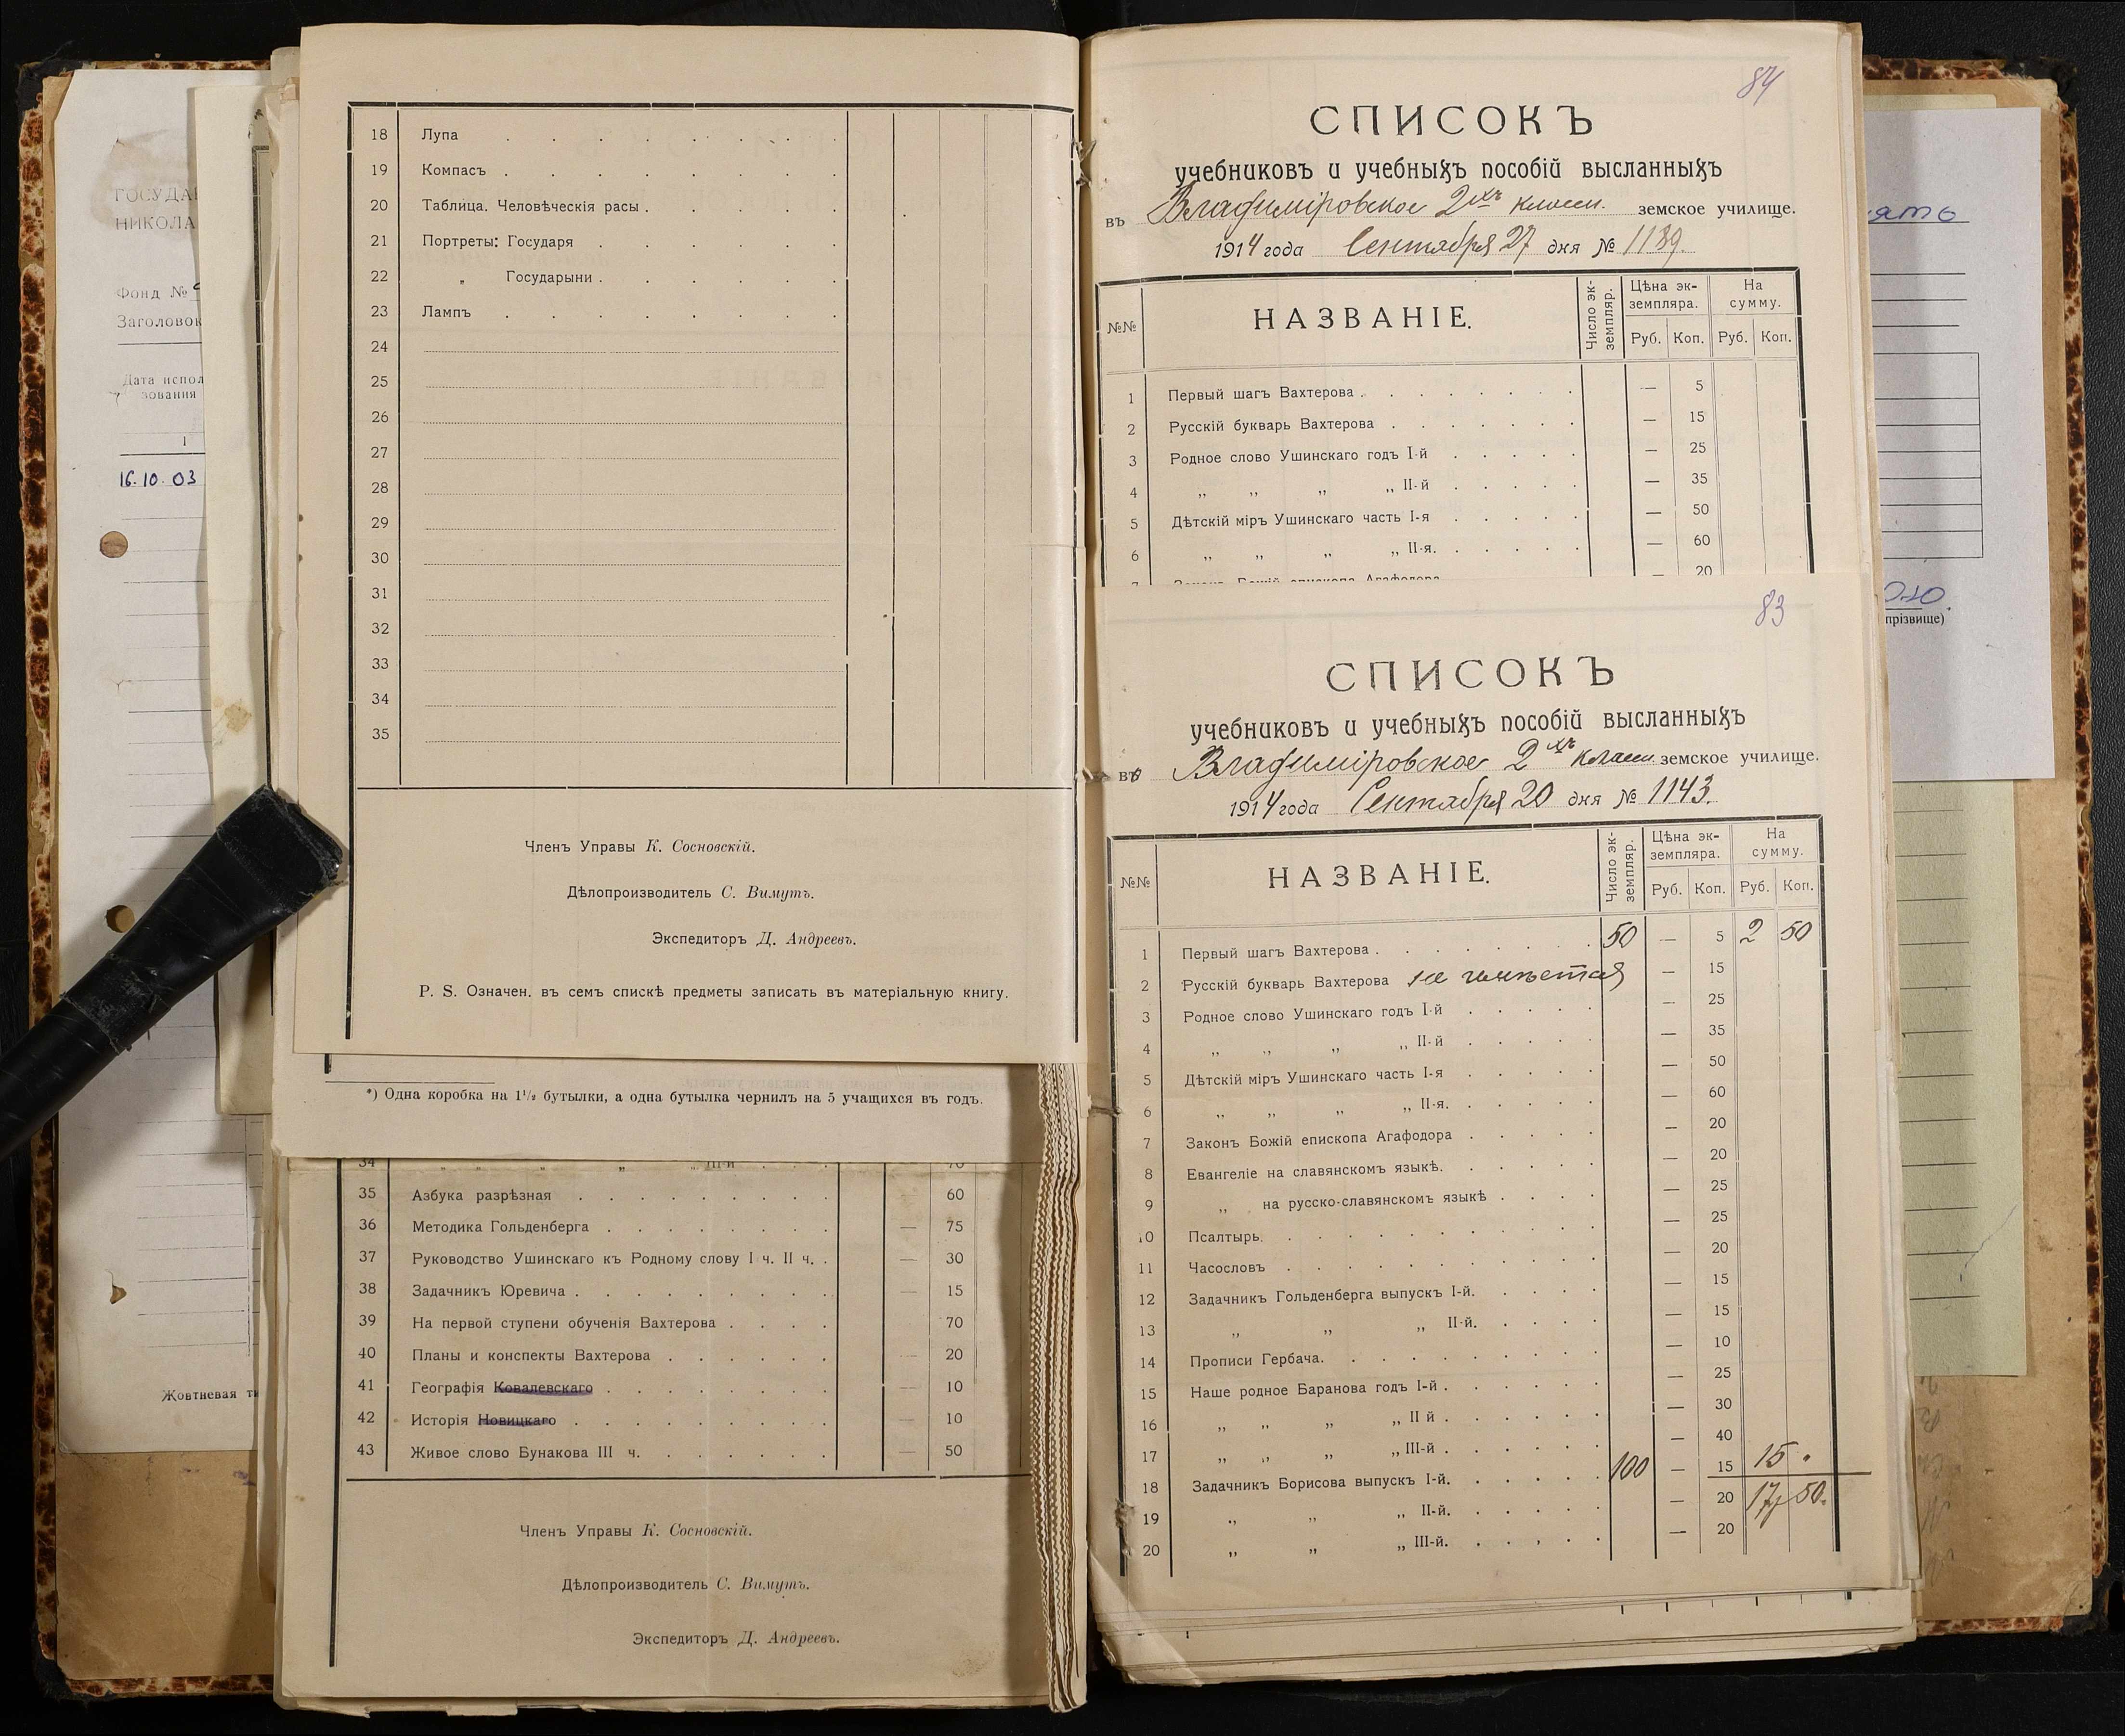 18 Лупа
19 Компасъ
20 Таблица. Человѣческія расы
21 Портреты: Государя
22 „ Государыни
23 Лампъ
24
25
26
27
28
29
30
31
32
33
34
35
Членъ Управы К. Сосновскій.
Дѣлопроизводитель С. Вимутъ.
Экспедиторъ Д. Андреевъ.
P. S. Означен. въ семъ спискѣ предметы записать въ матеріальную книгу.
*) Одна коробка на 1 1/2 бутылки, а одна бутылка чернилъ на 5 учащихся въ годъ.
34 „ „ „ „ „ III-й 70
35 Азбука разрѣзная 60
36 Методика Гольденберга — 75
37 Руководство Ушинскаго къ Родному слову I ч. II ч. — 30
38 Задачникъ Юревича — 15
39 На первой ступени обученія Вахтерова 70
40 Планы и конспекты Вахтерова — 20
41 Географія Ковалевскаго — 10
42 Исторія Новицкаго — 10
43 Живое слово Бунакова III ч. — 50
Членъ Управы К. Сосновскій.
Дѣлопроизводитель С. Вимутъ.
Экспедиторъ Д. Андреевъ.
84
СПИСОКЪ
учебниковъ и учебныхъ пособій высланныхъ
въ Владиміровское 2хъ класн. земское училище.
1914 года Сентября 27 дня № 1139.
№№ НАЗВАНІЕ. Число эк-земпляр. Цѣна эк-земпляра. На сумму.
Руб. Коп. Руб. Коп.
1 Первый шагъ Вахтерова — 5
2 Русскій букварь Вахтерова — 15
3 Родное слово Ушинскаго годъ I-й — 25
4 „ „ „ „ II-й — 35
5 Дѣтскій міръ Ушинскаго часть I-я — 50
6 „ „ „ „ II-я. — 60
7 Законъ Божій епископа Агафодора — 20
83
СПИСОКЪ
учебниковъ и учебныхъ пособій высланныхъ
въ Владиміровское 2хъ класн. земское училище.
1914 года Сентября 20 дня № 1143.
№№ НАЗВАНІЕ. Число эк-земпляр. Цѣна эк-земпляра. На сумму.
Руб. Коп. Руб. Коп.
1 Первый шагъ Вахтерова 50 — 5 2 50
2 Русскій букварь Вахтерова не имѣется — 15
3 Родное слово Ушинскаго годъ I-й — 25
4 „ „ „ „ II-й — 35
5 Дѣтскій міръ Ушинскаго часть I-я — 50
6 „ „ „ „ II-я. — 60
7 Законъ Божій епископа Агафодора — 20
8 Евангеліе на славянскомъ языкѣ. — 20
9 „ на русско-славянскомъ языкѣ — 25
10 Псалтырь — 25
11 Часословъ — 20
12 Задачникъ Гольденберга выпускъ I-й. — 15
13 „ „ „ II-й. — 15
14 Прописи Гербача. — 10
15 Наше родное Баранова годъ I-й — 25
16 „ „ „ „ II й — 30
17 „ „ „ „ III-й — 40
18 Задачникъ Борисова выпускъ I-й. 100 — 15 15 „
19 „ „ „ II-й. — 20 17р 50.
20 „ „ „ III-й. — 20
Фонд №
Заголовок
1
16.10.03
прізвище)